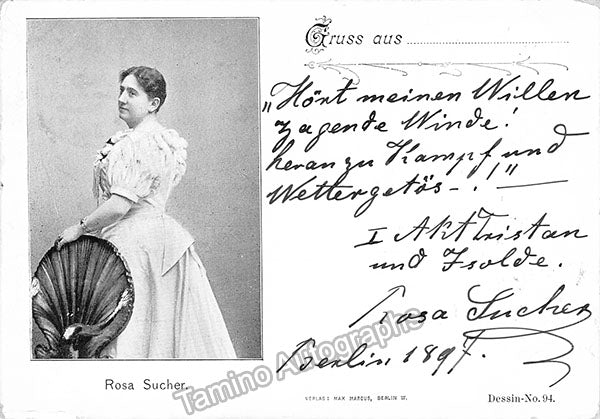 Gruss aus
„Hört meinen Willen
zagende Winde!
heran zu Kampf und
Wettergetös-!"
I Akt Tristan
und Isolde.
Rosa Sucher
Berlin 1897.
Rosa Sucher.
VERLAG: MAX MARCUS, BERLIN W.
Dessin-No. 94.
Tamino Autographs